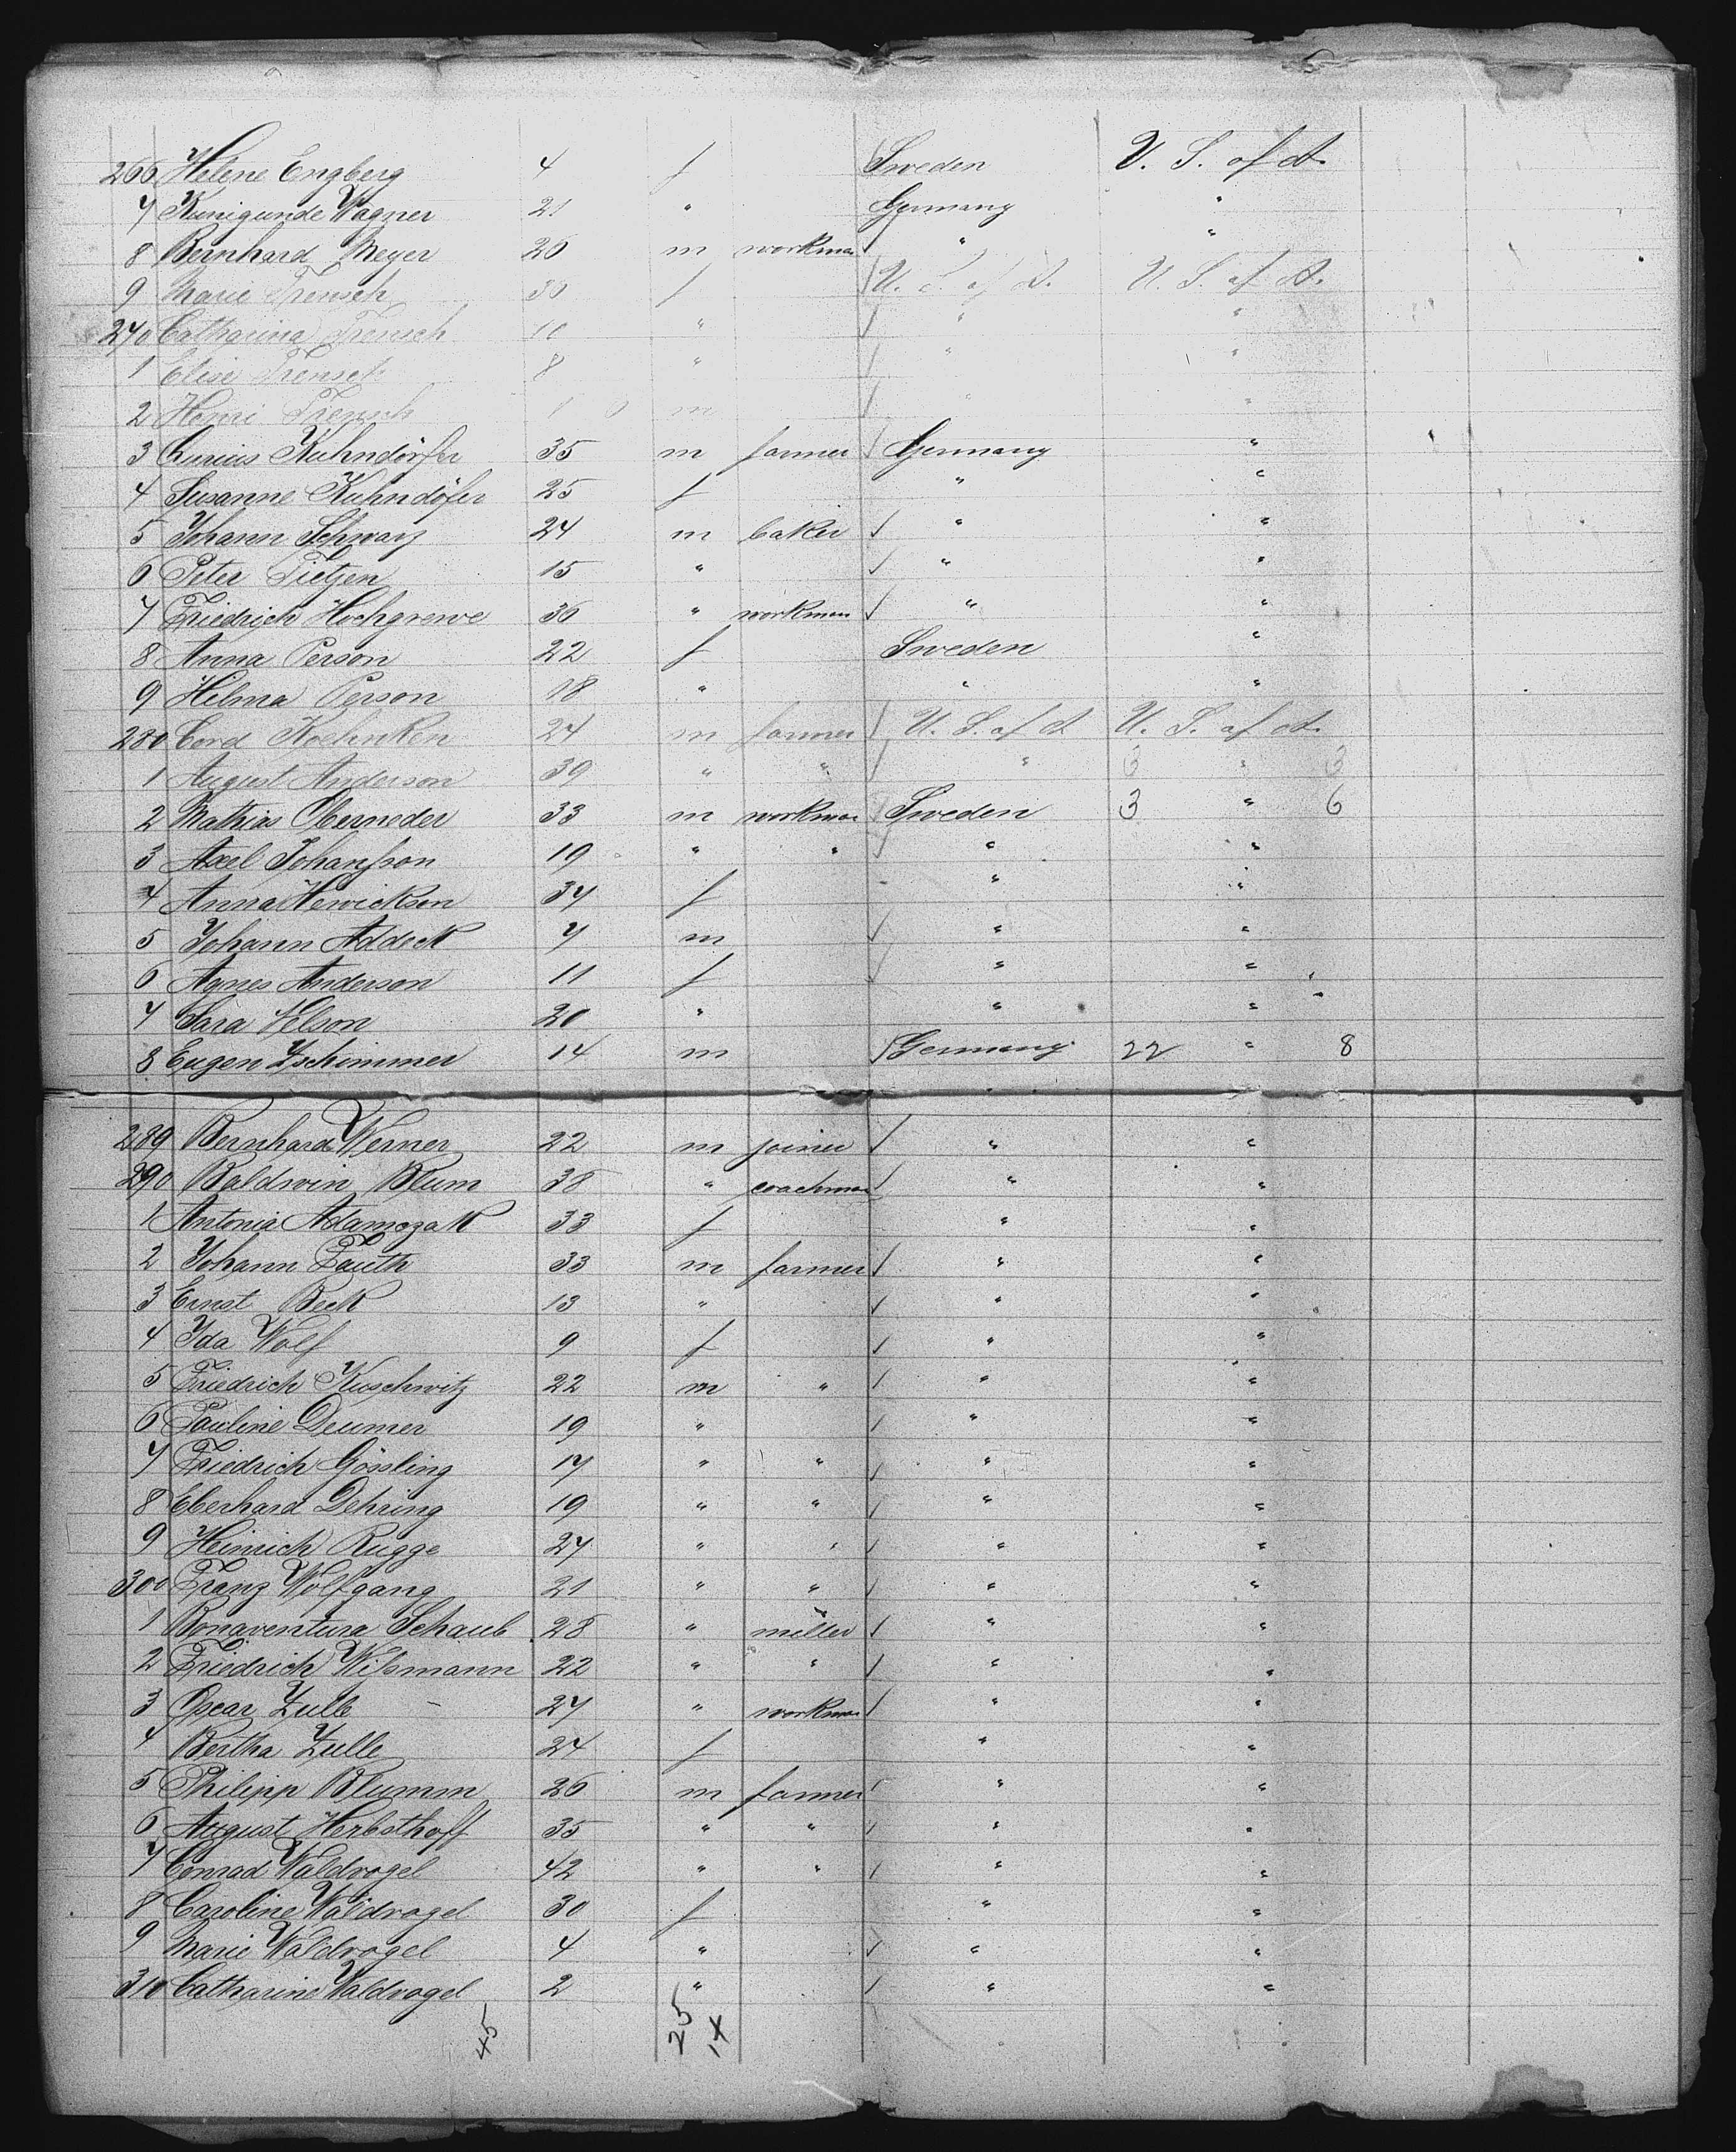 266 Helene Engberg 4 f Sweden U. S. of A.
7 Kunigunde Wagner 21 " Germany "
8 Bernhard Meyer 26 m workman " "
9 Marie Trensch 30 f U. S. of A. U. S. of A.
270 Catharina Trensch 10 " " "
1 Elise Trensch 8 " " "
2 Henri Trensch m " "
3 Kuhndörfer 35 m farmer Germany "
4 Susanne Kuhndöfer 25 f " "
5 Johann Schwarz 24 m baker " "
6 Peter Tietjen 15 " " "
7 Friedrich Hochgrewe 36 " workman " "
8 Anna Person 22 f Sweden "
9 Hilma Person 18 " " "
280 Cord Koehnken 24 m farmer U. S. of A U. S. of A.
1 August Anderson 39 " " " 3 " 3
2 Mathias Oberneder 33 m workman Sweden 3 " 6
3 Axel Johansson 19 " " " "
4 Anna Henrickson 34 f " "
5 Johann Addeck 7 m " "
6 Agnes Anderson 11 f " "
7 Sara Nelson 20 " " "
8 Eugen Zschimmer 14 m Germany 22 " 8
289 Bernhard Werner 22 m joiner " "
290 Baldwin Blum 38 " coachman " "
1 Antonia Adamozak 33 f " "
2 Johann Fauth 33 m farmer " "
3 Ernst Beck 13 " " "
4 Ida Wolf 9 f " "
5 Friedrich Kuschwitz 22 m " " "
6 Pauline Deumer 19 " " "
7 Friedrich Gössling 17 " " " "
8 Eberhard Dehring 19 " " " "
9 Heinrich Rugge 27 " " " "
300 Franz Wolfgang 21 " " " "
1 Bonaventura Schaub 28 " miller " "
2 Friedrich Wissmann 22 " " " "
3 Oscar Zulle 27 " workman " "
4 Bertha Zulle 24 f " "
5 Philipp Blumm 26 m farmer " "
6 August Herbsthoff 35 " " " "
7 Conrad Waldvogel 42 " " " "
8 Caroline Waldvogel 30 f " "
9 Marie Waldvogel 4 " " "
310 Catharine Waldvogel 2 " " "
45 25 14